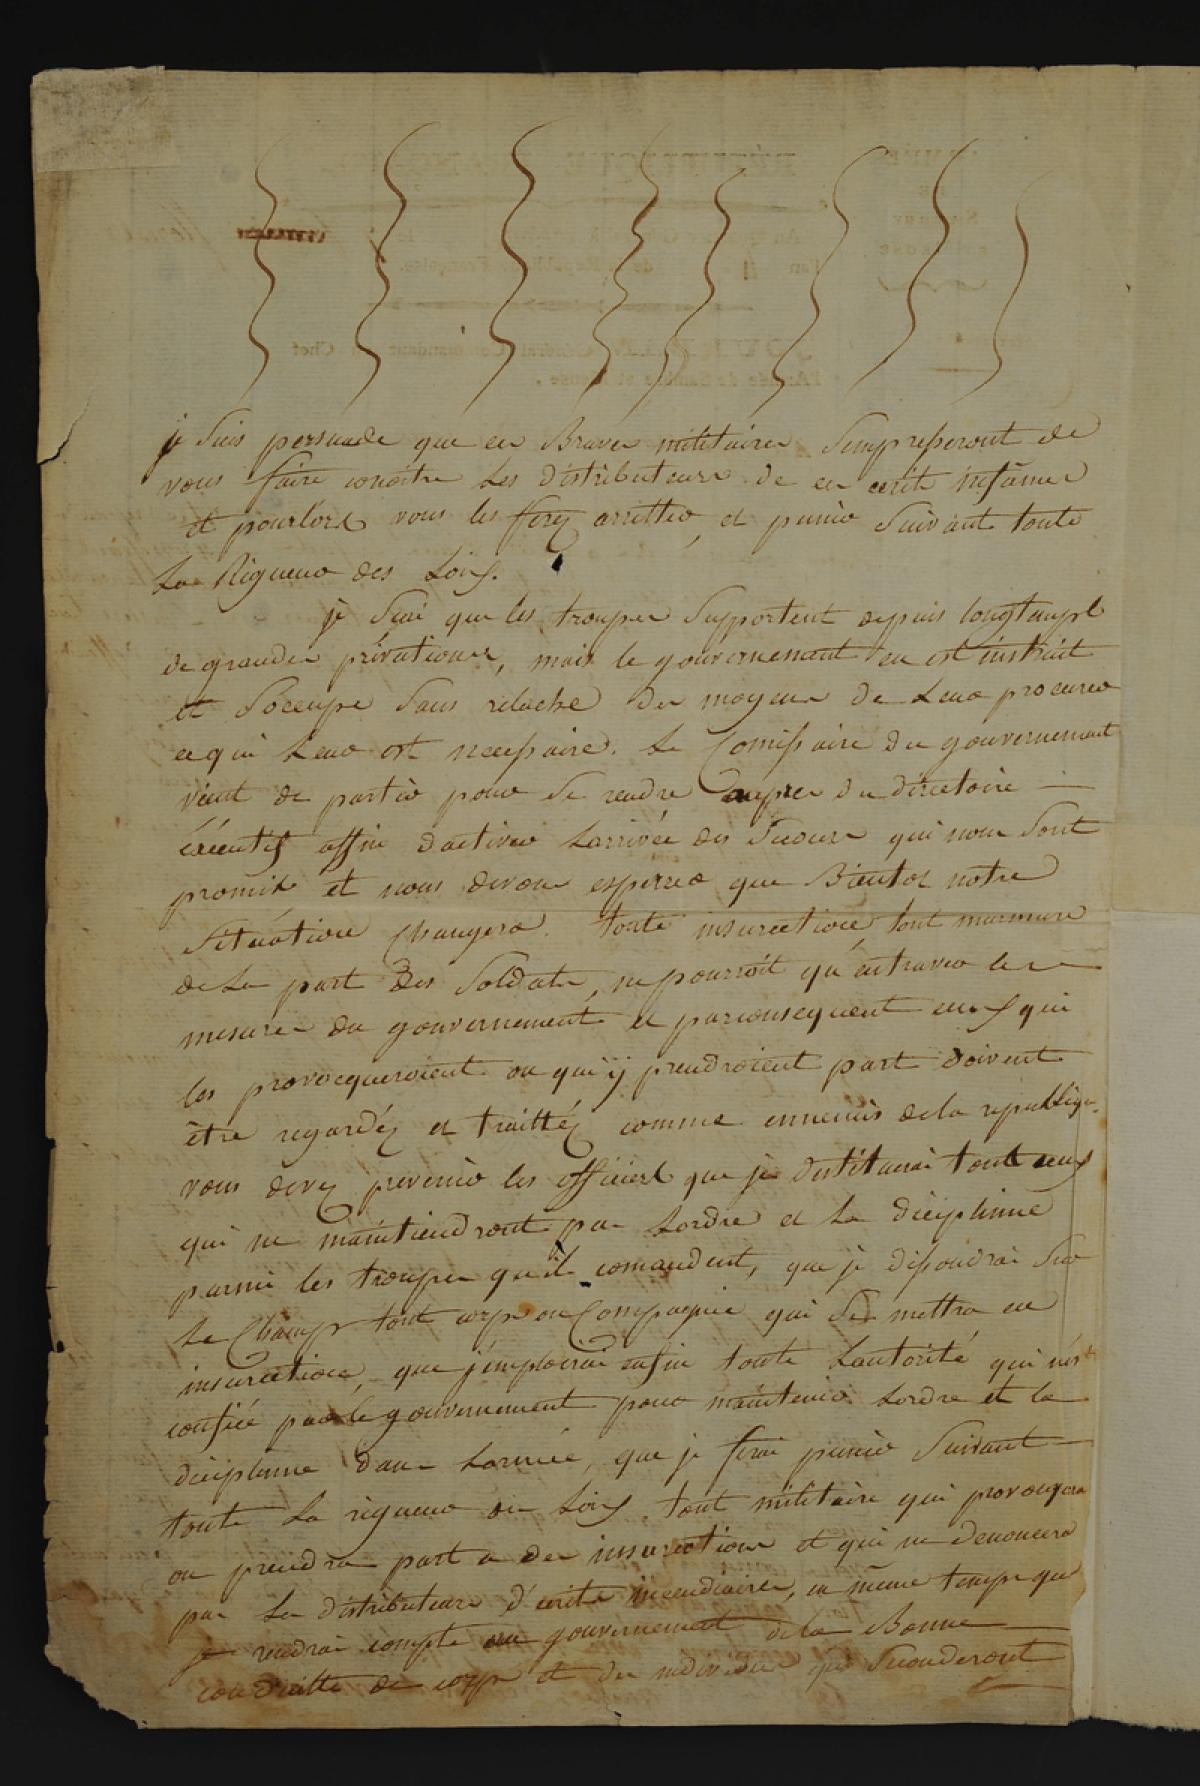 je suis persuadé que ces Braves militaires s'empresseront de
vous faire conoitre les distributeurs de ces ecrits infâmes
et pourlors vous les ferez arretter, et punir suivant toute
La Rigueur des Loix.
je scai que les troupes supportent depuis longtemps
de grandes privations, mais le gouvernement en est instruit
et s'occupe sans relache des moyens de Leur procurer
ce qui Leur est necessaire. Le Comissaire du gouvernement
vient de partir pour se rendre aupres du directoire
éxécutif affin d'activer Larrivée des secours qui nous sont
promis et nous devons esperer que Bientot notre
situation changera. toute insurection tout murmure
de La part des soldats, ne pourroit qu'entraver les
mesures du gouvernement et parconsequent ceux qui
les provocqueroient ou qui y prendroient part doivent
être regardéz et traittéz comme ennemis de la republique.
vous devez prevenir les officiers que je destituerai tout ceux
qui ne maintiendront pas Lordre et La diciplinne
parmi les troupes qu'ils comandent, que je dissoudrai sur
Le Champ tout corps ou Compagnie qui se mettra en
insurection, que j'emploirai enfin toute Lautorité qui m'est
confiée par le gouvernement pour maintenir Lordre et la
diciplinne dans Larmée, que je ferai punir suivant
toute La rigueur des Loix tout militaire qui provoquera
ou prendra part a des insurections et qui ne denoncera
pas Les distributeurs d'ecrits incendiaires, en même temps que
je rendrai compte au gouvernement de la Bonne
conduitte des corps et des individus qui seconderont